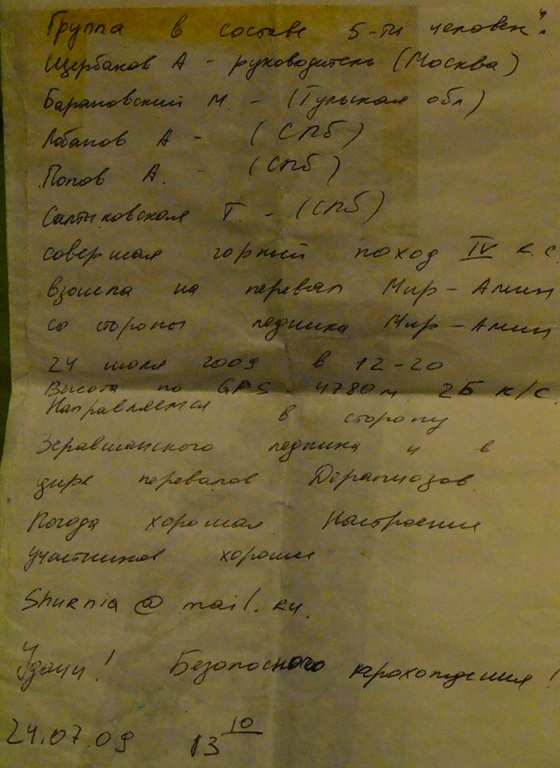 Группа в составе 5-ти человек:
Щербаков А - руководитель (Москва)
Барановский М. - (Тульская обл)
Лобанов А - (СПб)
Попов А. - (СПб)
Салтыковская Т. - (СПб)
совершая горный поход IV к.с.
взошла на перевал Мир-Амин
со стороны ледника Мир-Амин
24 июля 2009 в 12-20
Высота по GPS - 4780 м. 2Б к/с.
Направляемся в сторону
Зеравшанского ледника и в
цирк перевалов
Погода хорошая Настроение
участников хорошее
Shurnia@mail.ru.
Удачи! Безопасного прохождения!
24.07.09 13 10